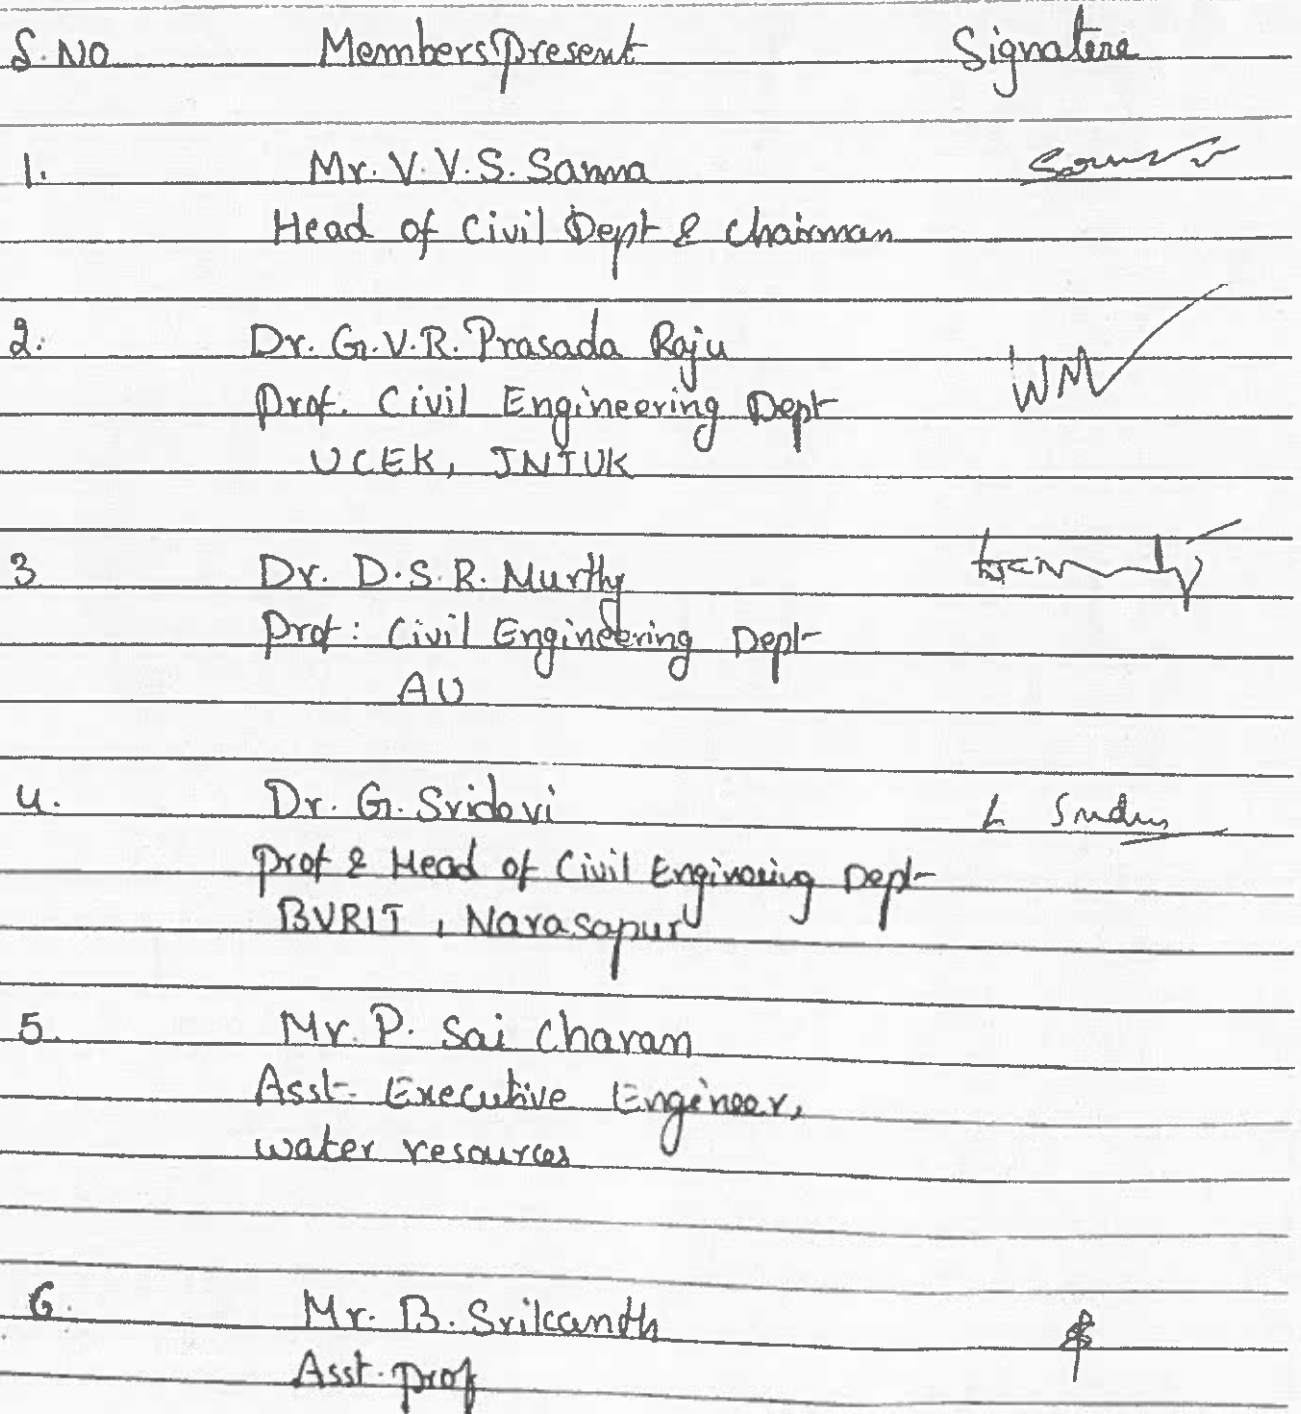 S.No Members Present Signature
1. Mr. V.V.S. Sarma
Head of Civil Dept & Chairman
2. Dr. G.V.R. Prasada Raju
Prof. Civil Engineering Dept
UCEK, JNTUK
3 Dr. D.S.R. Murthy
Prof: Civil Engineering Dept
AU
4. Dr. G. Sridevi
Prof & Head of Civil Engineering Dept
BVRIT, Narasapur
5. Mr. P. Sai Charan
Asst. Executive Engineer,
water resources
6. Mr. B. Srikanth
Asst. prof